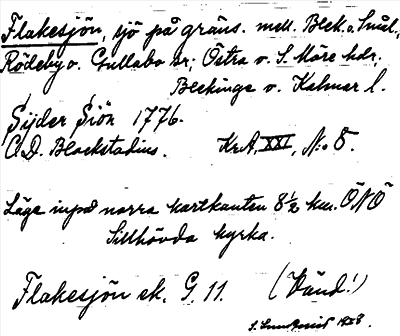 Flakesjön, sjö på gräns. mell. Blek. o. Smål.,
Rödeby o. Gullabo sn; Östra o. S. Möre hdr,
Blekinge o. Kalmar l.
Sijder Siön 1776.
C.D. Blackstadius. KrA, XXI, N:o 8.
Läge invid norra kartkanten 8½ km. ÖNÖ
Sillhövda kyrka.
Flakesjön ek. G. 11. (Vänd!)
1928.